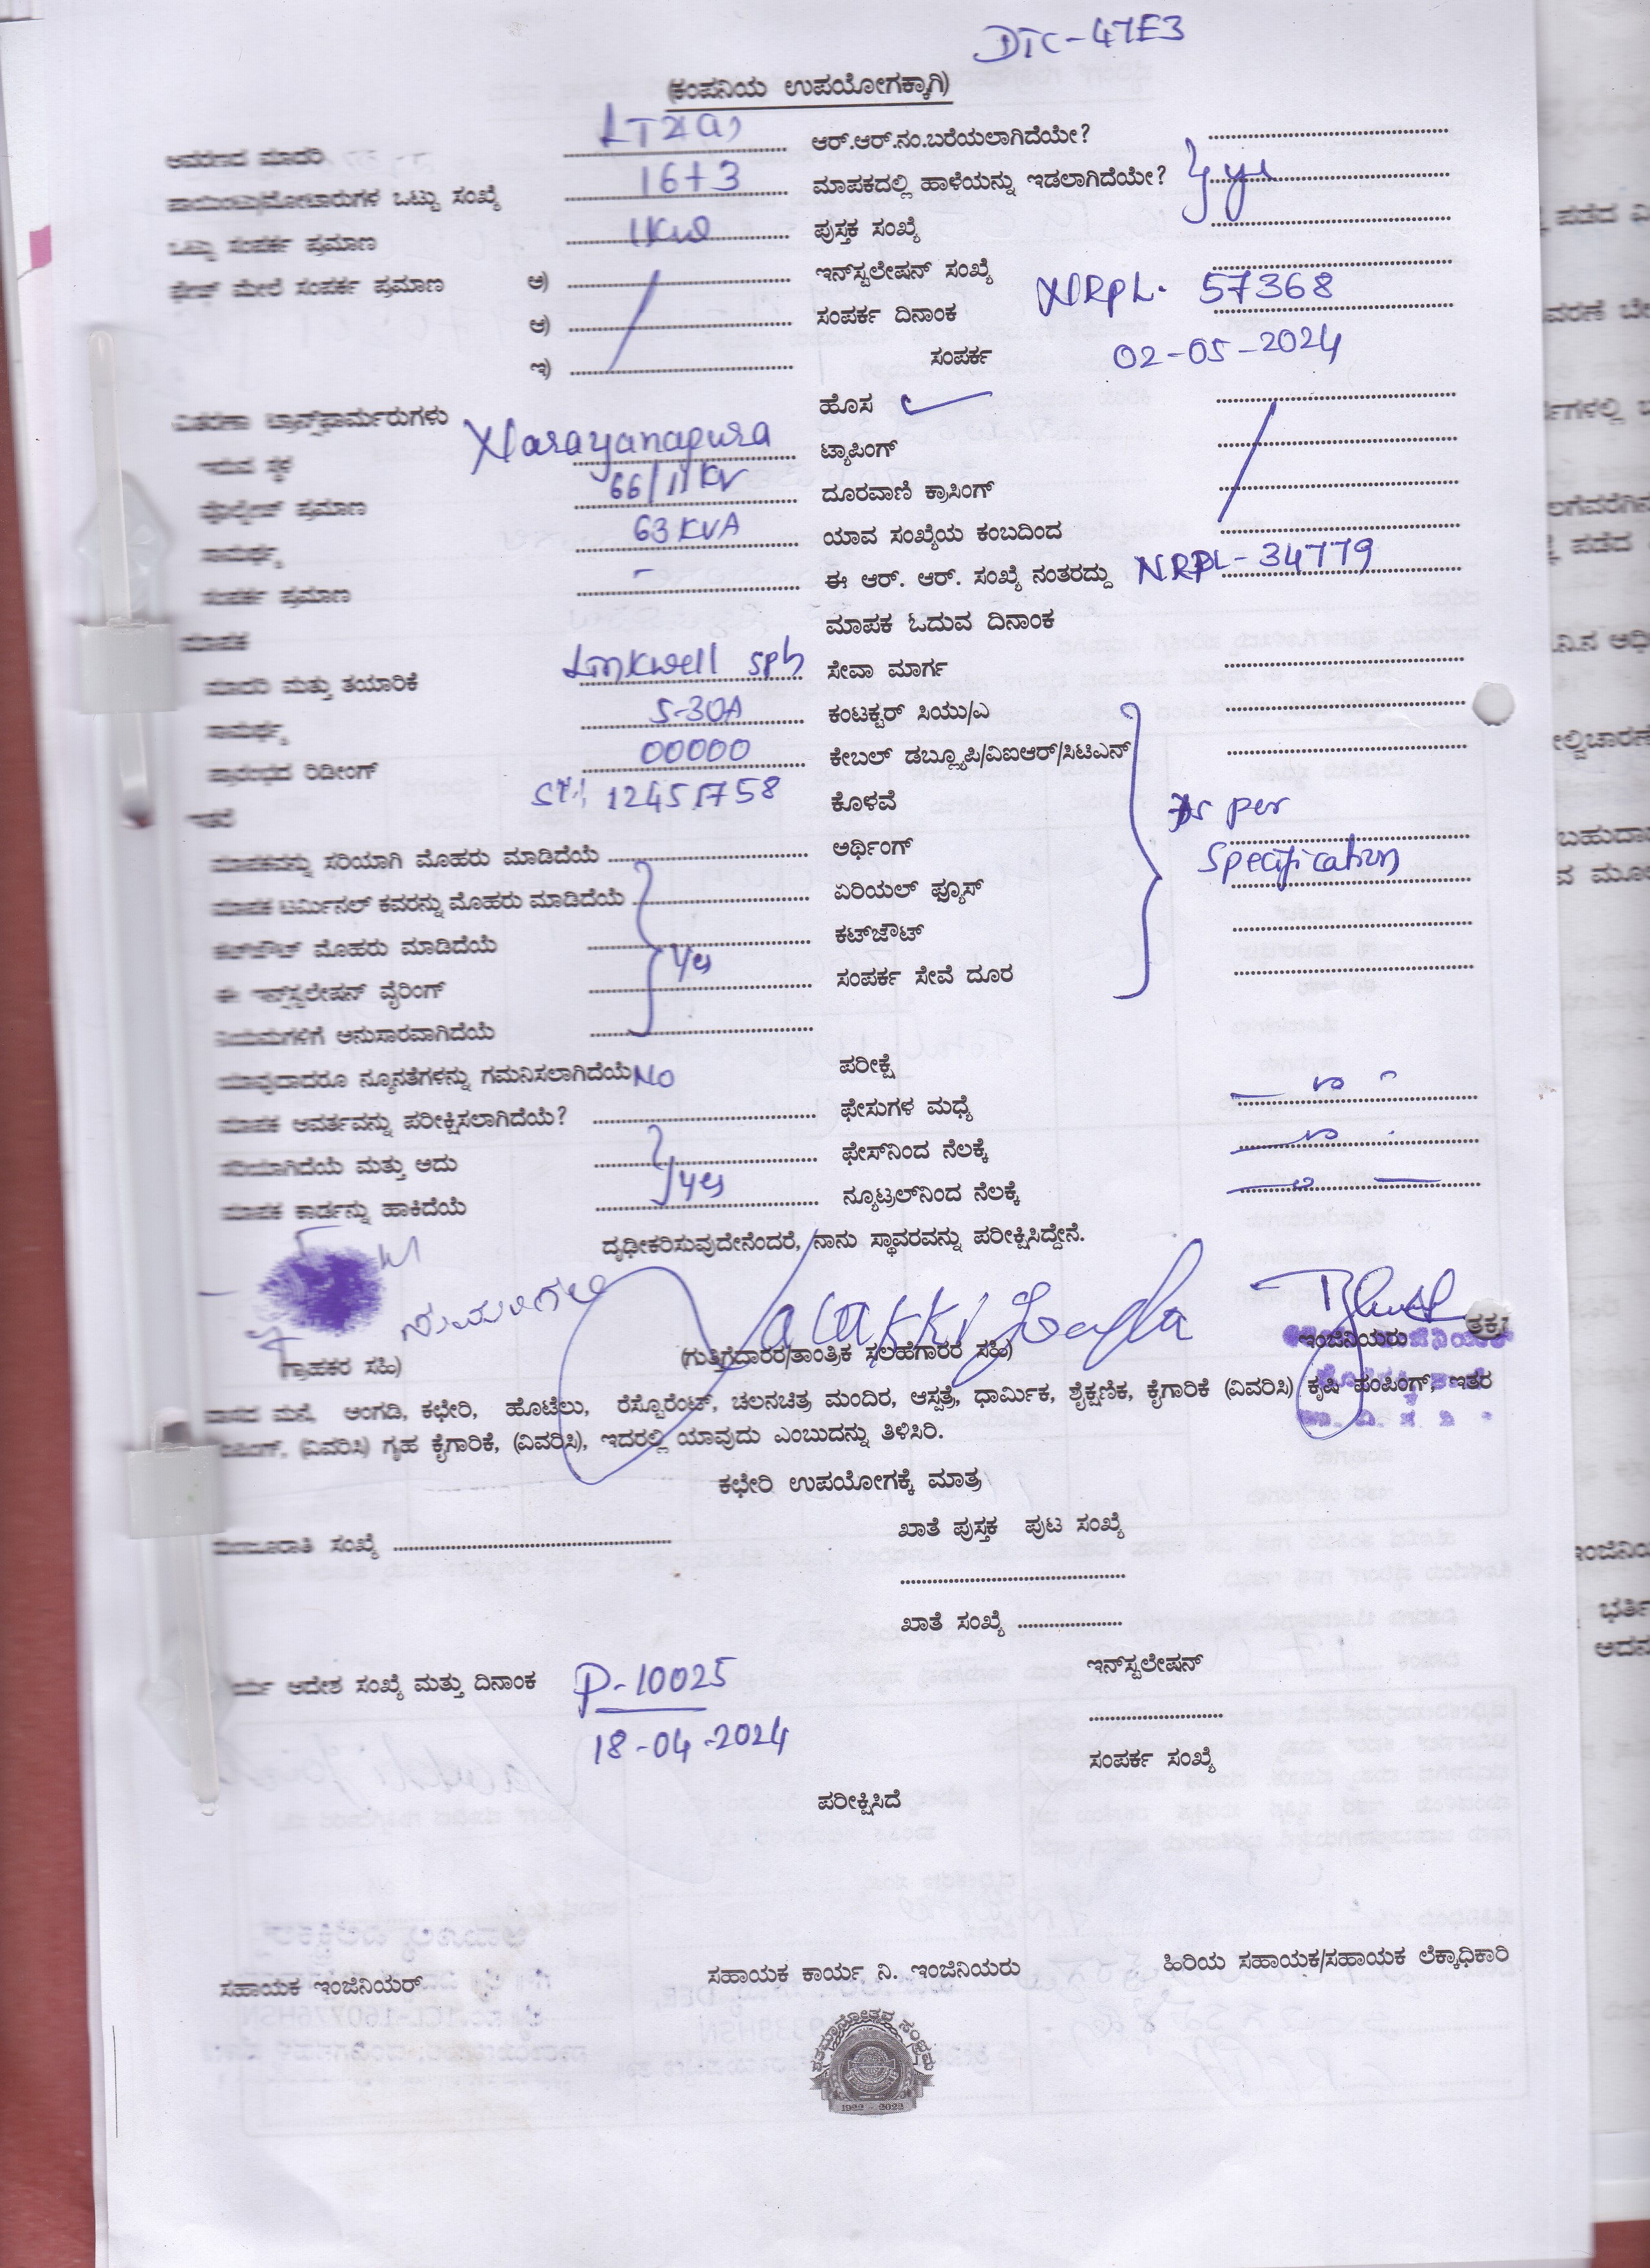 DTC-47E3
(ಕಂಪನಿಯ ಉಪಯೋಗಕ್ಕಾಗಿ)
ಆವರಣದ ಮಾದರಿ ಆರ್.ಆರ್.ನಂ.ಬರೆಯಲಾಗಿದೆಯೇ?
ಪಾಯಿಂಟು/ಮೋಟಾರುಗಳ ಒಟ್ಟು ಸಂಖ್ಯೆ 16+3 ಮಾಪಕದಲ್ಲಿ ಹಾಳೆಯನ್ನು ಇಡಲಾಗಿದೆಯೇ?
ಒಟ್ಟು ಸಂಪರ್ಕ ಪ್ರಮಾಣ 1Kw ಪುಸ್ತಕ ಸಂಖ್ಯೆ
ಫೇಜ್ ಮೇಲೆ ಸಂಪರ್ಕ ಪ್ರಮಾಣ ಅ) ಇನ್‌ಸ್ಟಲೇಷನ್ ಸಂಖ್ಯೆ NRPL. 57368
ಆ) ಸಂಪರ್ಕ ದಿನಾಂಕ
ಇ) ಸಂಪರ್ಕ 02-05-2024
ವಿತರಣಾ ಟ್ರಾನ್ಸ್‌ಫಾರ್ಮರುಗಳು ಹೊಸ
ಇರುವ ಸ್ಥಳ Narayanapura ಟ್ಯಾಪಿಂಗ್
ವೋಲ್ಟೇಜ್ ಪ್ರಮಾಣ 66/11KV ದೂರವಾಣಿ ಕ್ರಾಸಿಂಗ್
ಸಾಮರ್ಥ್ಯ 63KVA ಯಾವ ಸಂಖ್ಯೆಯ ಕಂಬದಿಂದ
ಸಂಪರ್ಕ ಪ್ರಮಾಣ - ಈ ಆರ್. ಆರ್. ಸಂಖ್ಯೆ ನಂತರದ್ದು NRPL-34779
ಮಾಪಕ ಮಾಪಕ ಓದುವ ದಿನಾಂಕ
ಮಾದರಿ ಮತ್ತು ತಯಾರಿಕೆ Linkwell sph ಸೇವಾ ಮಾರ್ಗ
ಸಾಮರ್ಥ್ಯ 5-30A ಕಂಟಕ್ಟರ್ ಸಿಯು/ಎ
ಪ್ರಾರಂಭದ ರಿಡೀಂಗ್ 00000 ಕೇಬಲ್ ಡಬ್ಲ್ಯೂಪಿ/ವಿಐಆರ್/ಸಿಟಿಎನ್
ಇತರೆ 12451758 ಕೊಳವೆ As per
ಮಾಪಕವನ್ನು ಸರಿಯಾಗಿ ಮೊಹರು ಮಾಡಿದೆಯೆ ಅರ್ಥಿಂಗ್ Specification
ಮಾಪಕ ಟರ್ಮಿನಲ್ ಕವರನ್ನು ಮೊಹರು ಮಾಡಿದೆಯೆ ಏರಿಯಲ್ ಫ್ಯೂಸ್
ಕಟ್‌ಔಟ್ ಮೊಹರು ಮಾಡಿದೆಯೆ ಕಟ್‌ಔಟ್
ಈ ಇನ್‌ಸ್ಟಲೇಷನ್ ವೈರಿಂಗ್ Yes ಸಂಪರ್ಕ ಸೇವೆ ದೂರ
ನಿಯಮಗಳಿಗೆ ಅನುಸಾರವಾಗಿದೆಯೆ
ಯಾವುದಾದರೂ ನ್ಯೂನತೆಗಳನ್ನು ಗಮನಿಸಲಾಗಿದೆಯೆ NO ಪರೀಕ್ಷೆ
ಮಾಪಕ ಆವರ್ತವನ್ನು ಪರೀಕ್ಷಿಸಲಾಗಿದೆಯೆ? ಫೇಸುಗಳ ಮಧ್ಯೆ
ಸರಿಯಾಗಿದೆಯೆ ಮತ್ತು ಅದು ಫೇಸ್‌ನಿಂದ ನೆಲಕ್ಕೆ
ಮಾಪಕ ಕಾರ್ಡನ್ನು ಹಾಕಿದೆಯೆ Yes ನ್ಯೂಟ್ರಲ್‌ನಿಂದ ನೆಲಕ್ಕೆ
ದೃಢೀಕರಿಸುವುದೇನೆಂದರೆ, ನಾನು ಸ್ಥಾವರವನ್ನು ಪರೀಕ್ಷಿಸಿದ್ದೇನೆ.
ಗ್ರಾಹಕರ ಸಹಿ) (ಗುತ್ತಿಗೆದಾರರ/ತಾಂತ್ರಿಕ ಸಲಹೆಗಾರರ ಸಹಿ) ಇಂಜಿನಿಯರು
ವಾಸದ ಮನೆ, ಅಂಗಡಿ, ಕಛೇರಿ, ಹೊಟೆಲು, ರೆಸ್ಟೊರೆಂಟ್, ಚಲನಚಿತ್ರ ಮಂದಿರ, ಆಸ್ಪತ್ರೆ, ಧಾರ್ಮಿಕ, ಶೈಕ್ಷಣಿಕ, ಕೈಗಾರಿಕೆ (ವಿವರಿಸಿ) ಕೃಷಿ ಪಂಪಿಂಗ್, ಇತರ
(ವಿವರಿಸಿ) ಗೃಹ ಕೈಗಾರಿಕೆ, (ವಿವರಿಸಿ), ಇದರಲ್ಲಿ ಯಾವುದು ಎಂಬುದನ್ನು ತಿಳಿಸಿರಿ.
ಕಛೇರಿ ಉಪಯೋಗಕ್ಕೆ ಮಾತ್ರ
ಮಂಜೂರಾತಿ ಸಂಖ್ಯೆ ಖಾತೆ ಪುಸ್ತಕ ಪುಟ ಸಂಖ್ಯೆ
ಖಾತೆ ಸಂಖ್ಯೆ
ಆದೇಶ ಸಂಖ್ಯೆ ಮತ್ತು ದಿನಾಂಕ P-10025 ಇನ್‌ಸ್ಟಲೇಷನ್
18-04-2024 ಸಂಪರ್ಕ ಸಂಖ್ಯೆ
ಪರೀಕ್ಷಿಸಿದೆ
ಸಹಾಯಕ ಇಂಜಿನಿಯರ್ ಸಹಾಯಕ ಕಾರ್ಯ ನಿ. ಇಂಜಿನಿಯರು ಹಿರಿಯ ಸಹಾಯಕ/ಸಹಾಯಕ ಲೆಕ್ಕಾಧಿಕಾರಿ
1922 - 2022